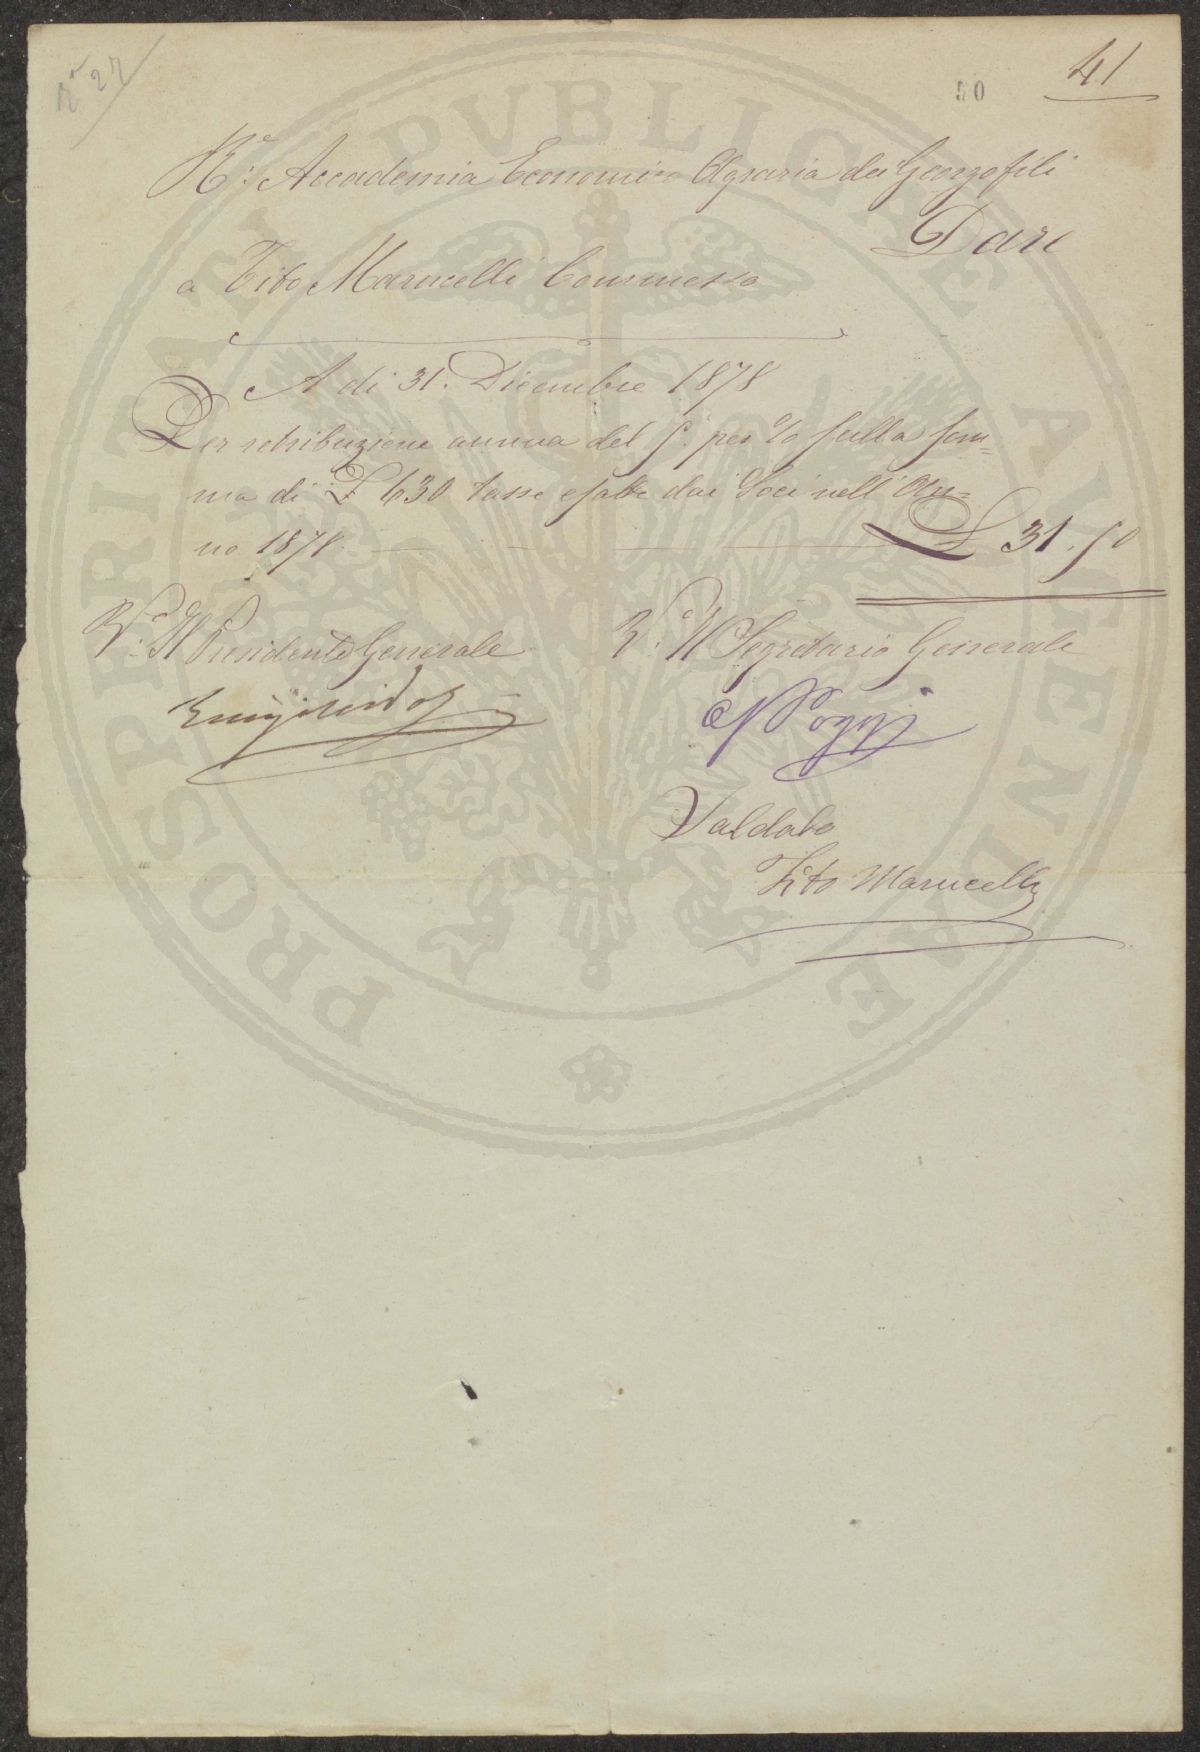 n° 27
50
41
R.e Accademia Economico Agraria dei Georgofili
Dare
a Tito Marucelli Commesso
A di 31. Dicembre 1878
Per retribuzione annua del 5. per % sulla som=
ma di £ 630 tasse esatte dai Soci nell' An=
no 1878. £ 31.50
V.o Il Presidente Generale
V.o Il Segretario Generale
Saldato
Tito Marucelli
PROSPERITATI PVBLICAE AVGENDAE